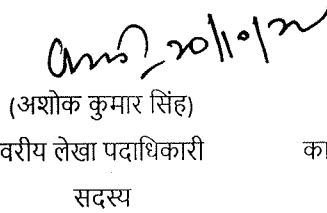 20/10/22
(अशोक कुमार सिंह)
वरीय लेखा पदाधिकारी का
सदस्य